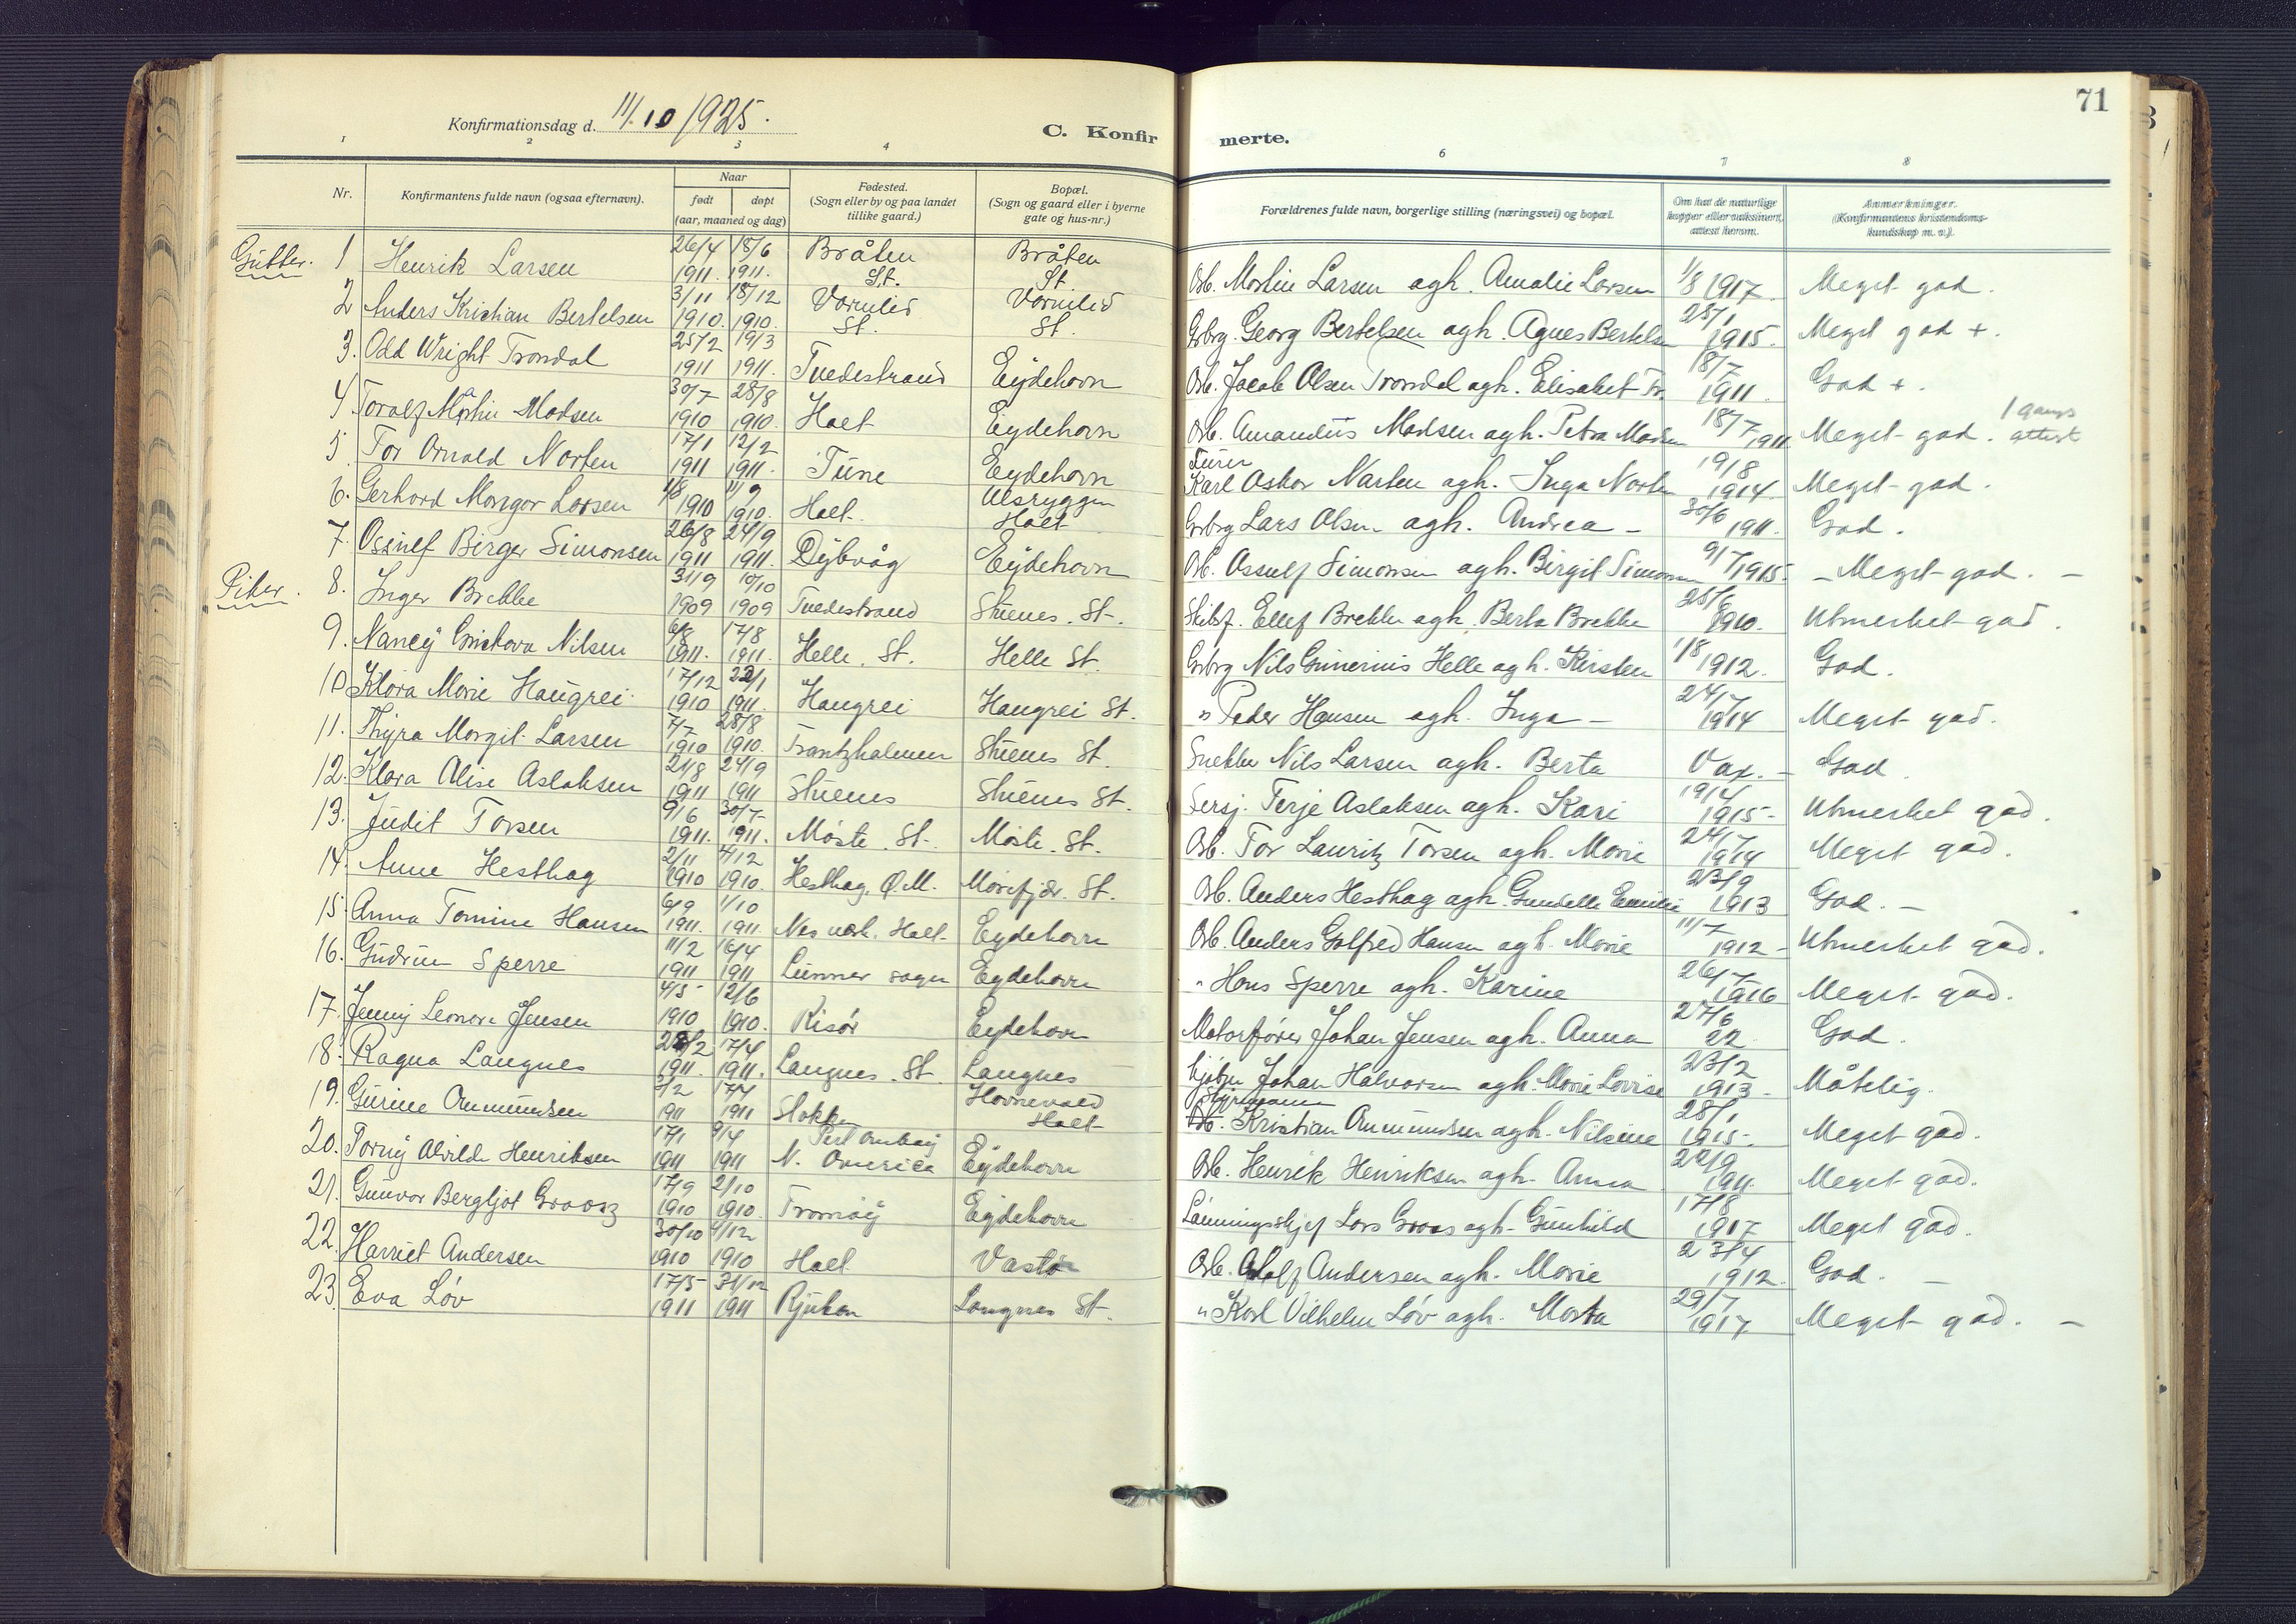 71
Konfirmationsdag d. 11/10 1925.
C. Konfir
merte.
1 2 3 4 6 7 8
Nr.
Konfirmantens fulde navn (ogsaa efternavn).
Naar
født døpt
(aar, maaned og dag)
Fødested.
(Sogn eller by og paa landet
tillike gaard.)
Bopæl.
(Sogn og gaard eller i byerne
gate og hus-nr.)
Forældrenes fulde navn, borgerlige stilling (næringsvei) og bopæl.
Om hat de naturlige
kopper eller vaksinert,
attest herom.
Anmerkninger.
(Konfirmantens kristendoms-
kundskap m. v.).
Gutter. 1 Henrik Larsen 26/4 1911. 18/6 1911. Bråten St. Bråten St. Arb. Martin Larsen agh. Amalie Larsen 1/8 1917. Meget god.
2 Anders Kristian Bertelsen 3/11 1910. 18/12 1910. Vornlid St. Vornlid St. Grbrg. Georg Bertelsen agh. Agnes Bertelsen 25/1 1915. Meget god +.
3. Odd Wright Trondal 25/2 1911 19/3 1911. Tvedestrand Eydehavn Arb. Jacob Olsen Trondal agh. Elisabet Tr. 18/7 1911. God +.
4 Toralf Martin Madsen 30/7 1910 28/8 1910. Holt Eydehavn Arb. Amandus Madsen agh. Petra Madsen 18/7 1911 Meget god. 1 gangs attest
5. Tor Arnold Narten 17/1 1911 12/2 1911. Tune Eydehavn Karl Oskar Narten agh. Inga Narten 19/8 1914. Meget god.
6. Gerhard Mangor Larsen 1/8 1910 11/9 1910. Holt. Ulsryggen Holt Grbrg Lars Olsen agh. Andrea – 30/6 1911. God.
7. Ossulf Birger Simonsen 26/8 1911 24/9 1911. Dybvåg Eydehavn Arb. Ossulf Simonsen agh. Birgit Simonsen 9/7 1915. – Meget god. –
Piker. 8. Inger Brekke 31/9 1909 10/10 1909 Tvedestrand Stuenes. St. Skibsf. Ellef Brekke agh. Berta Brekke 25/6 1910. Utmerket god.
9. Nancy Gustava Nilsen 6/8 1911. 17/8 1911. Helle. St. Helle St. Grbrg Nils Gunerius Helle agh. Kirsten 1/8 1912. God.
10 Klara Marie Haugrei 17/12 1910 22/1 1911. Haugrei Haugrei St. " Peder Hansen agh. Inga – 24/7 1914 Meget god.
11. Thyra Margit Larsen 7/7 1910 28/8 1910. Frantzholmen Stuenes St. Snekker Nils Larsen agh. Berta Vax. – God.
12. Klara Alise Aslaksen 21/8 1911 24/9 1911 Stuenes Stuenes St. Sersj. Terje Aslaksen agh. Kari 19/4 1915 – Utmerket god.
13. Judit Torsen 9/6 1911. 30/7 1911. Måste. St. Måste. St. Arb. Tor Lauritz Torsen agh. Marie 24/7 1914 Meget god.
14. Anne Hesthag 2/11 1910 4/12 1910. Hesthag, Ø.M. Morefjær. St. Arb. Anders Hesthag agh. Gundelle Emilie 23/9 1913 God. –
15. Anna Tomine Hansen 6/9 1911. 1/10 1911. Nes verk. Holt. Eydehavn Arb. Anders Golfred Hansen agh. Marie 11/7 1912 – Utmerket god.
16. Gudrun Sperre 11/2 1911 16/4 1911 Lunner sogn Eydehavn " Hans Sperre agh. Karine 26/7 1916 Meget god.
17. Jenny Leonora Jensen 4/5 1910 12/6 1910. Risør Eydehavn Motorfører Johan Jensen agh. Anna 27/6 22 God.
18. Ragna Langnes 28/2 1911. 17/4 1911. Langnes. St. Langnes Johan Halvorsen agh. Marie Lovise 23/2 1913 – Måtelig.
19. Gurine Anmundsen 7/2 1911 17/4 1911 Stokken Hovnevald Holt Styrmann Kristian Anmundsen agh. Nilsine 28/1 1915. Meget god.
20. Torny Alvilde Henriksen 17/1 1911 9/4 1911 Pert Amboy N. America Eydehavn Arb. Henrik Henriksen agh. Anna 22/9 1911. Meget god.
21. Gunvor Bergljot Graasz 17/9 1910 2/10 1910. Tromøy Eydehavn Lønningssjef Lars Graas agh. Gunhild 17/8 1917 Meget god.
22. Harriet Andersen 30/10 1910 4/12 1910 Holt Vastø Arb. Adolf Andersen agh. Marie 23/4 1912. God. –
23. Eva Löv 17/5 1911 31/12 1911 Rjukan Langnes St. " Karl Vilhelm Löv agh. Marta 29/7 1917 Meget god. –